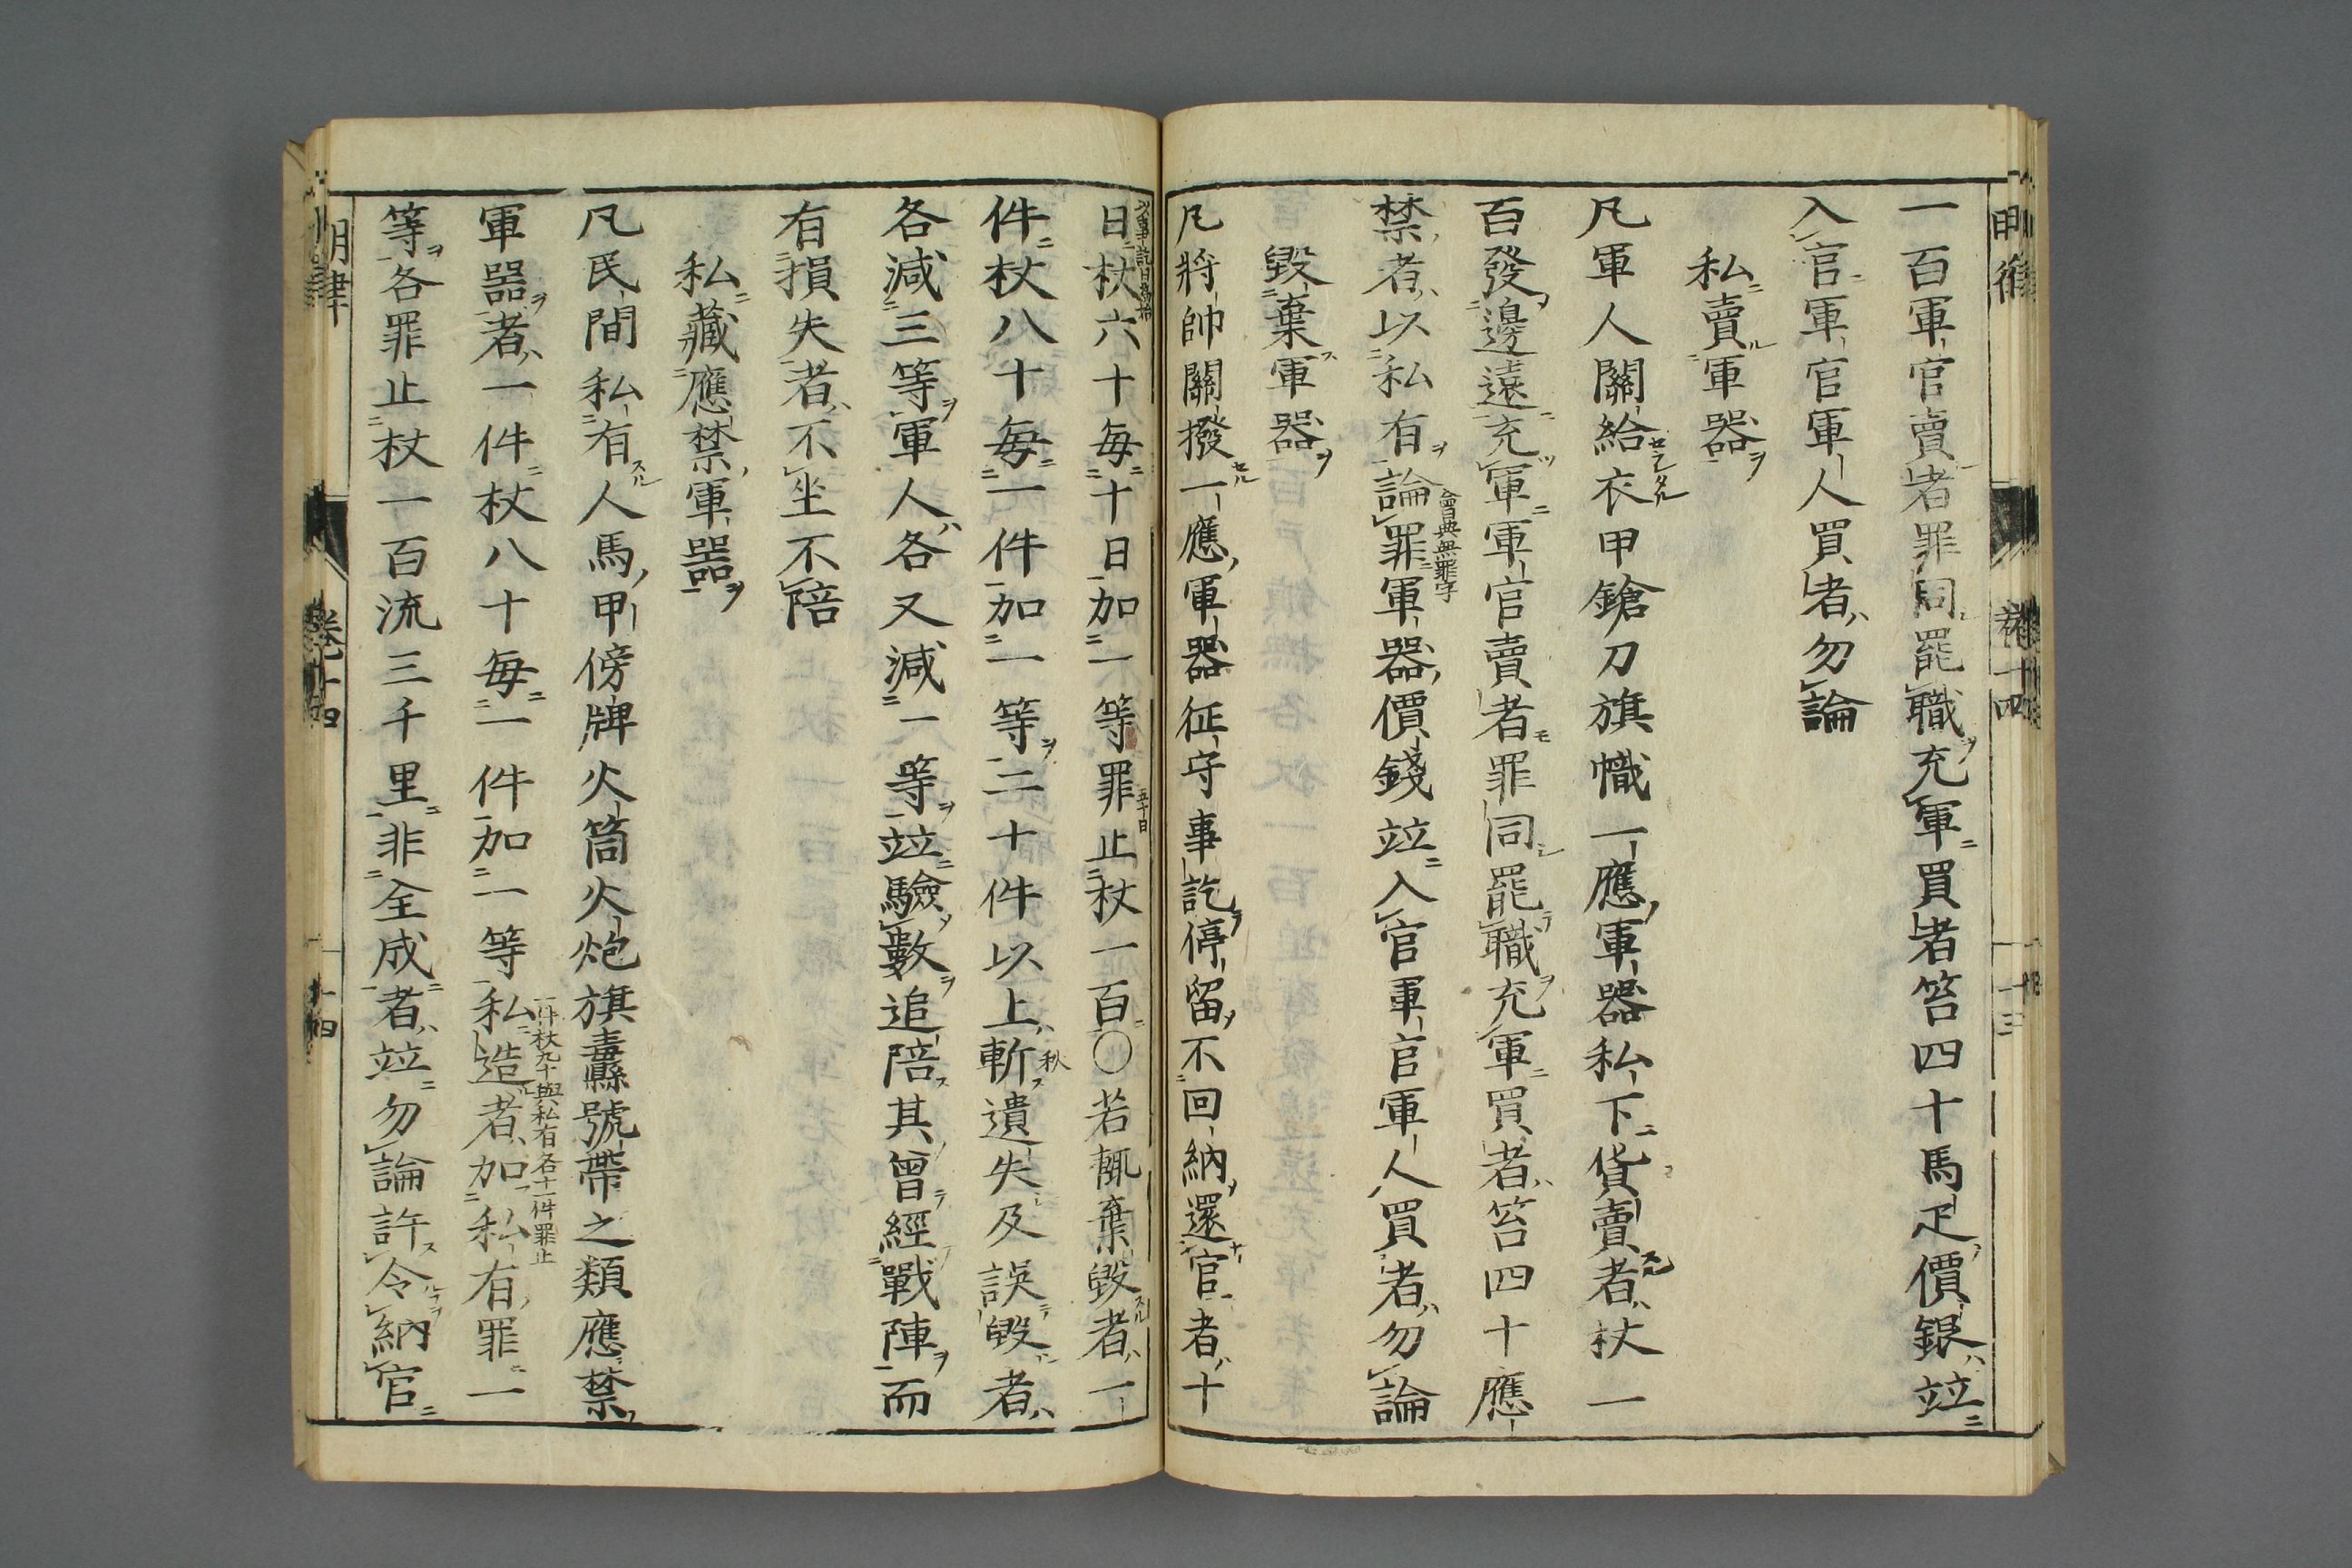 一百軍官賣者罪同罷職充軍買者笞四十馬疋價銀竝
入官軍官軍人買者勿論
私賣軍器
凡軍人關給衣甲鎗刀旗幟一應軍器私下貨賣者杖一
百發邊遠充軍軍官賣者罪同罷職充軍買者笞四十應
禁者以私有論罪軍器價錢竝入官軍官軍人買者勿論
會典無罪字
毀棄軍器
凡將帥關撥一應軍器征守事訖停留不回納還官者十
日杖六十每十日加一等罪止杖一百○若輒棄毀者一
五十日
件杖八十每一件加一等二十件以上斬遺失及誤毀者
秋
各減三等軍人各又減一等竝驗數追陪其曾經戰陣而
有損失者不坐不陪
私藏應禁軍器
凡民間私有人馬甲傍牌火筒火炮旗纛號帶之類應禁
軍器者一件杖八十每一件加一等私造者加私有罪一
一件杖九十與私有各十一件罪止
等各罪止杖一百流三千里非全成者竝勿論許令納官
卷十四
十四